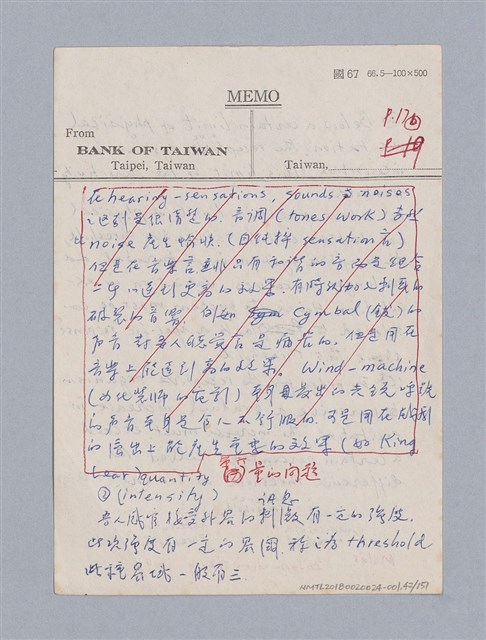 國67 66.5—100×500
MEMO
P.17
P.19
From
BANK OF TAIWAN
Taipei, Taiwan
Taiwan,
在hearing-sensations, sounds 与 noises
区別是很清楚的. 音調 (tones work)
noise 產生愉快. (自純粹 sensation 言)
但是在音樂言是非只有和諧的音而是組合
一体以達到更高的效果. 有時須加入刺耳的
破裂的音響 例如 Cymbal (鈸) 的
声音 對吾人感覺言是痛苦的. 但是用在
音樂上能達到高的效果. Wind-machine
的声音本身是令人不舒服的. 可是用在戲劇
的演出上能產生
的效果 (如 King
Lear)
quantity 量的问题
② (intensity)
吾人感官接受外界的刺激有一定的強度.
此項強度有一定的界圍. 称之為 threshold
此種界域 一般有三.
NMTL20180020024-001.42/151